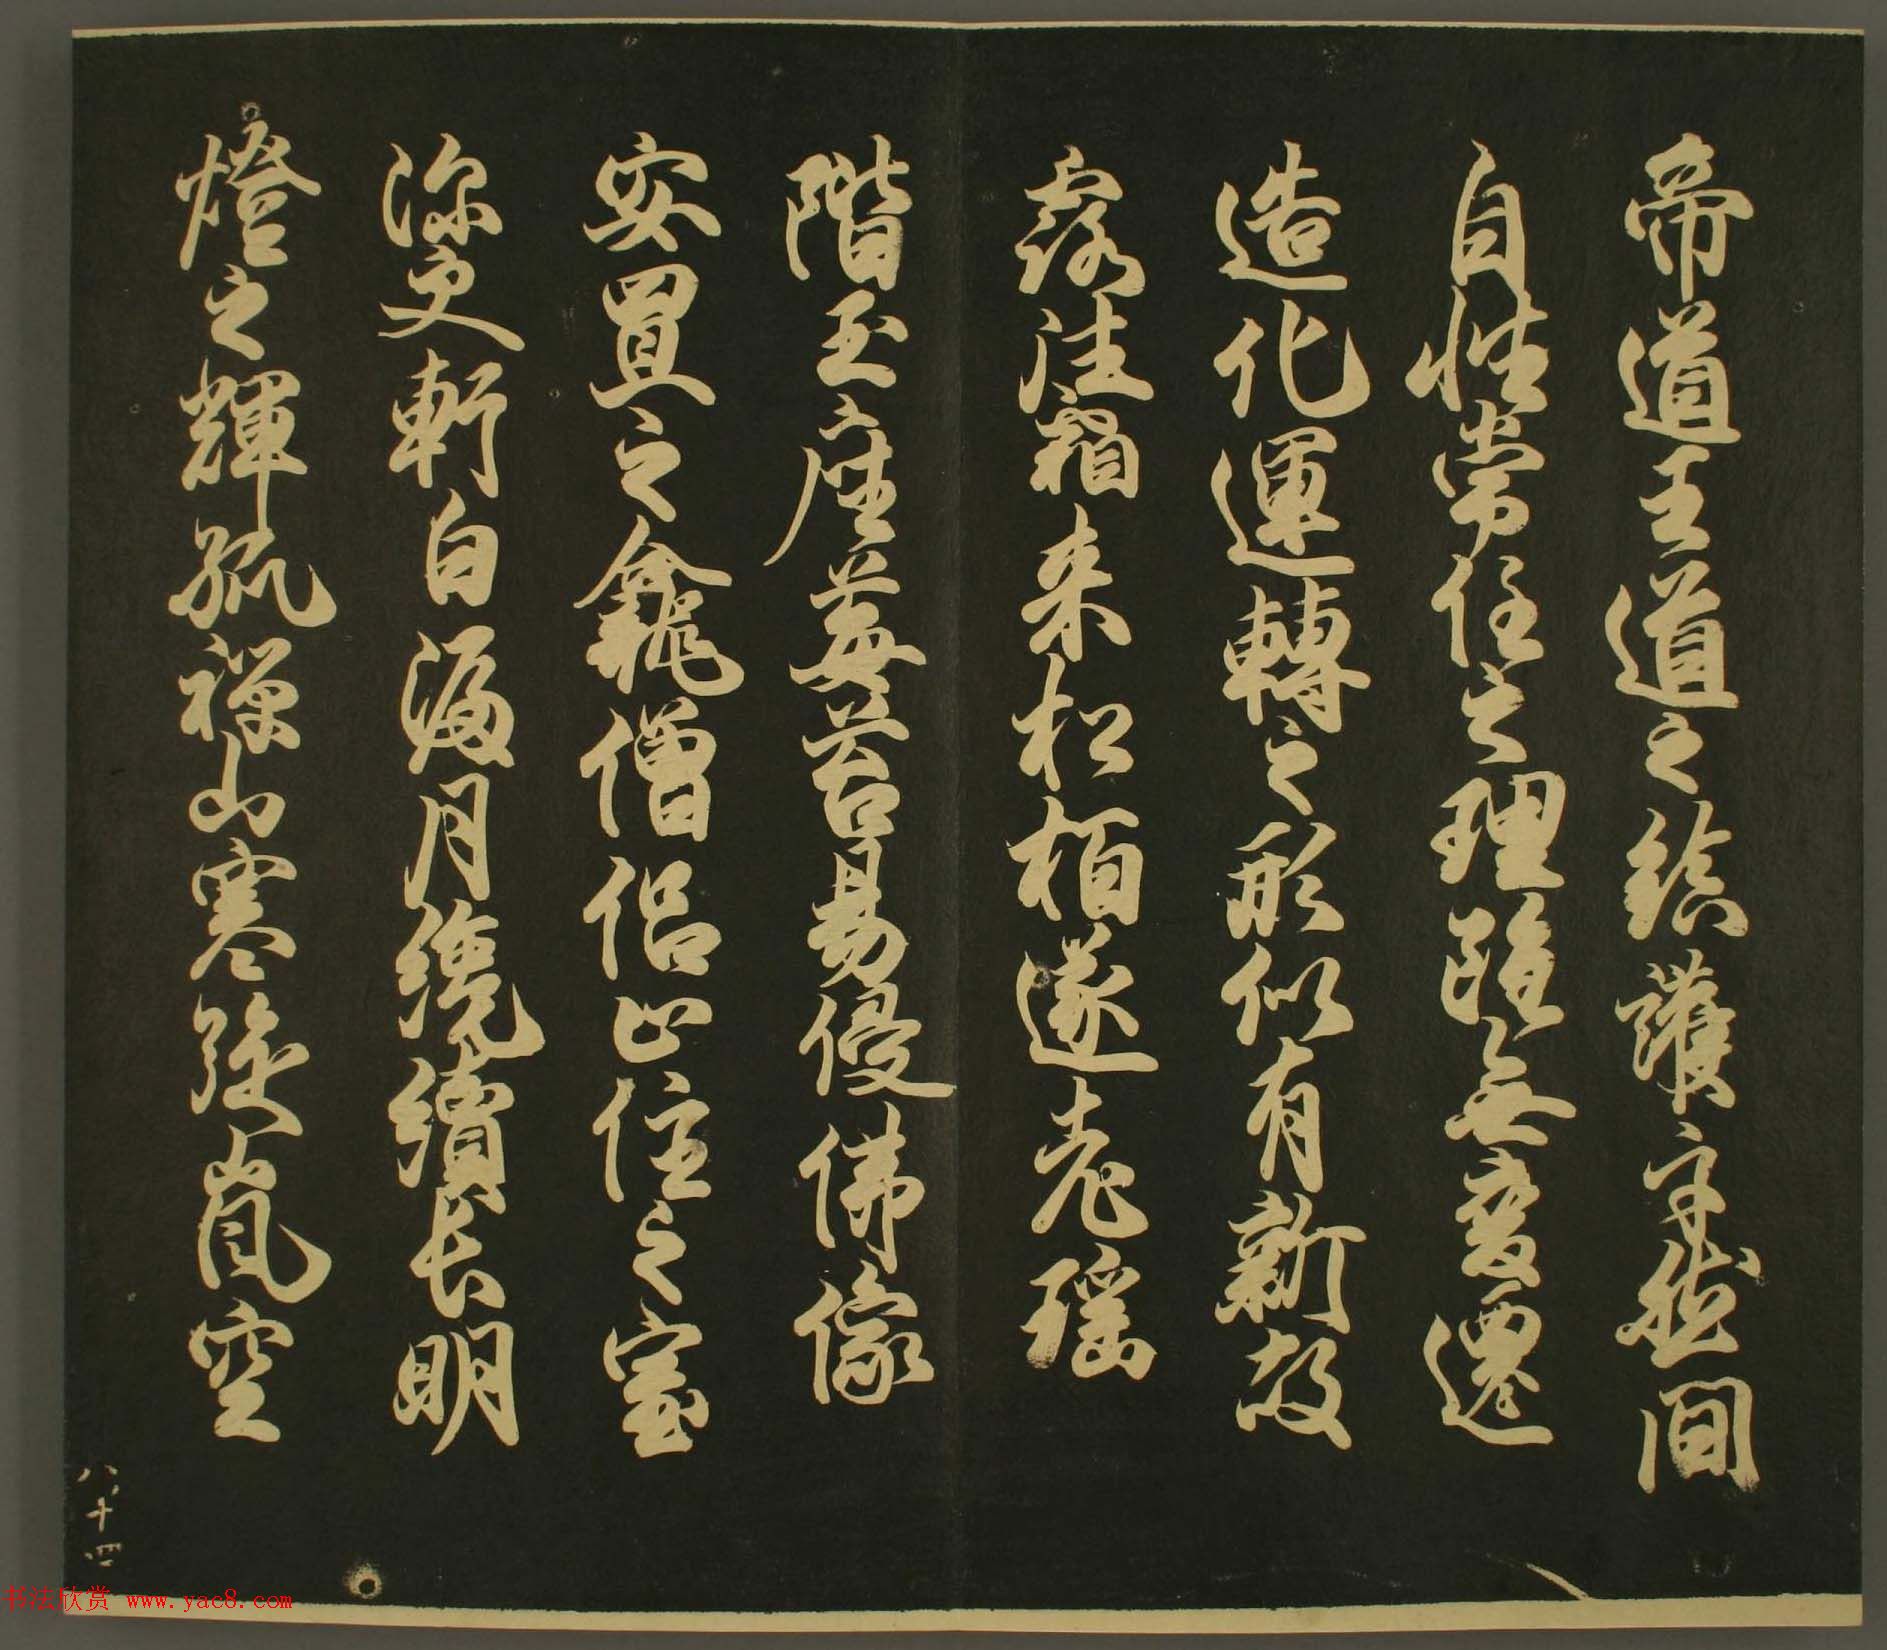 帝道王道之護守然間
自性常住之理雖無變遷
造化運轉之形似有新故
露往霜来松栢遂老瑶
階玉座莓苔易侵佛像
安置之龕僧侶止住之室
深更軒白漏月纔續長明
燈之輝孤禅山寒強嵐空
八十四
书法欣赏 www.yac8.com